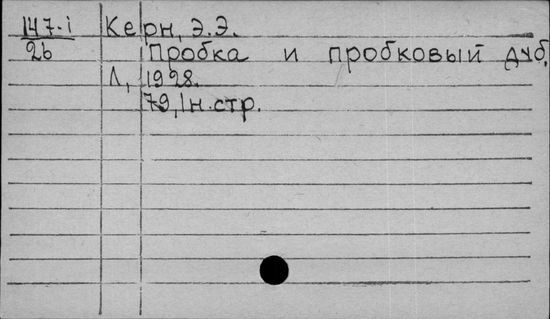 147-i Керн, Э.Э.
26 Пробка и пробковый дуб,
Л, 1928.
79, 1 н.стр.